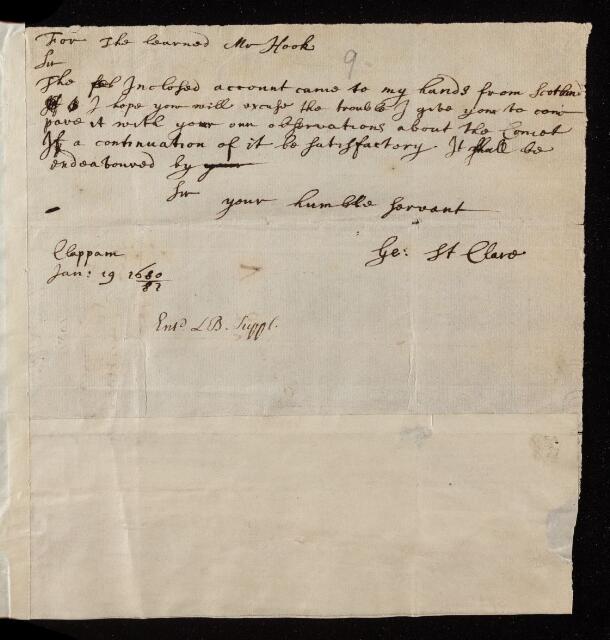 For The learned Mr Hook
9.
Sir
The Inclosed account came to my hands from Scotland
I hope your will excuse the trouble I give yow to com
pare it with your own observations about the Comet
If a continuation of it be satisfactory. It shall be
endeavoured by
Sir
your humble servant
Clappam
Ge: St Clare
Jan: 19 1680/81
Entd LB. Suppl.